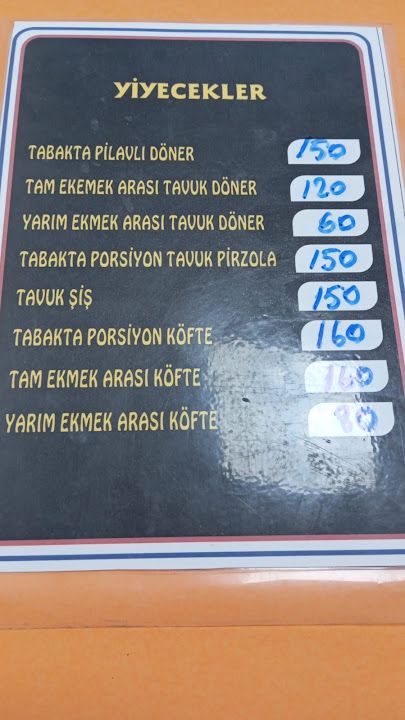 YİYECEKLER
TABAKTA PİLAVLI DÖNER 150
TAM EKEMEK ARASI TAVUK DÖNER 120
YARIM EKMEK ARASI TAVUK DÖNER 60
TABAKTA PORSİYON TAVUK PİRZOLA 150
TAVUK ŞİŞ 150
TABAKTA PORSİYON KÖFTE 160
TAM EKMEK ARASI KÖFTE 160
YARIM EKMEK ARASI KÖFTE 80